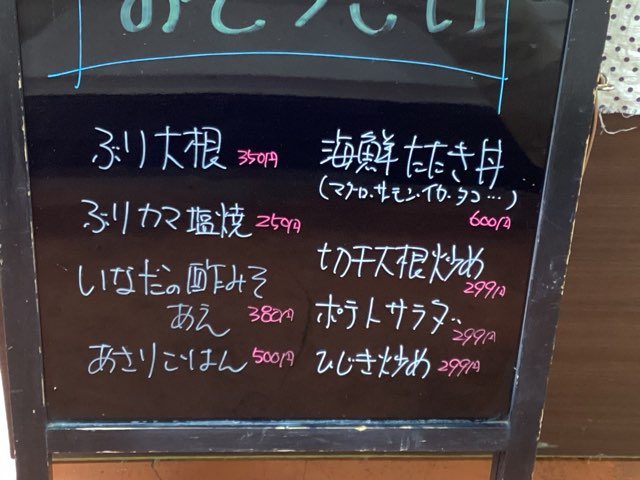 ぶり大根 350円
ぶりカマ塩焼 250円
いなだの酢みそ
あえ 380円
あさりごはん 500円
海鮮たたき丼
(マグロ.サーモン.イカ.タコ…)
600円
切干大根炒め
299円
ポテトサラダ
299円
ひじき炒め 299円